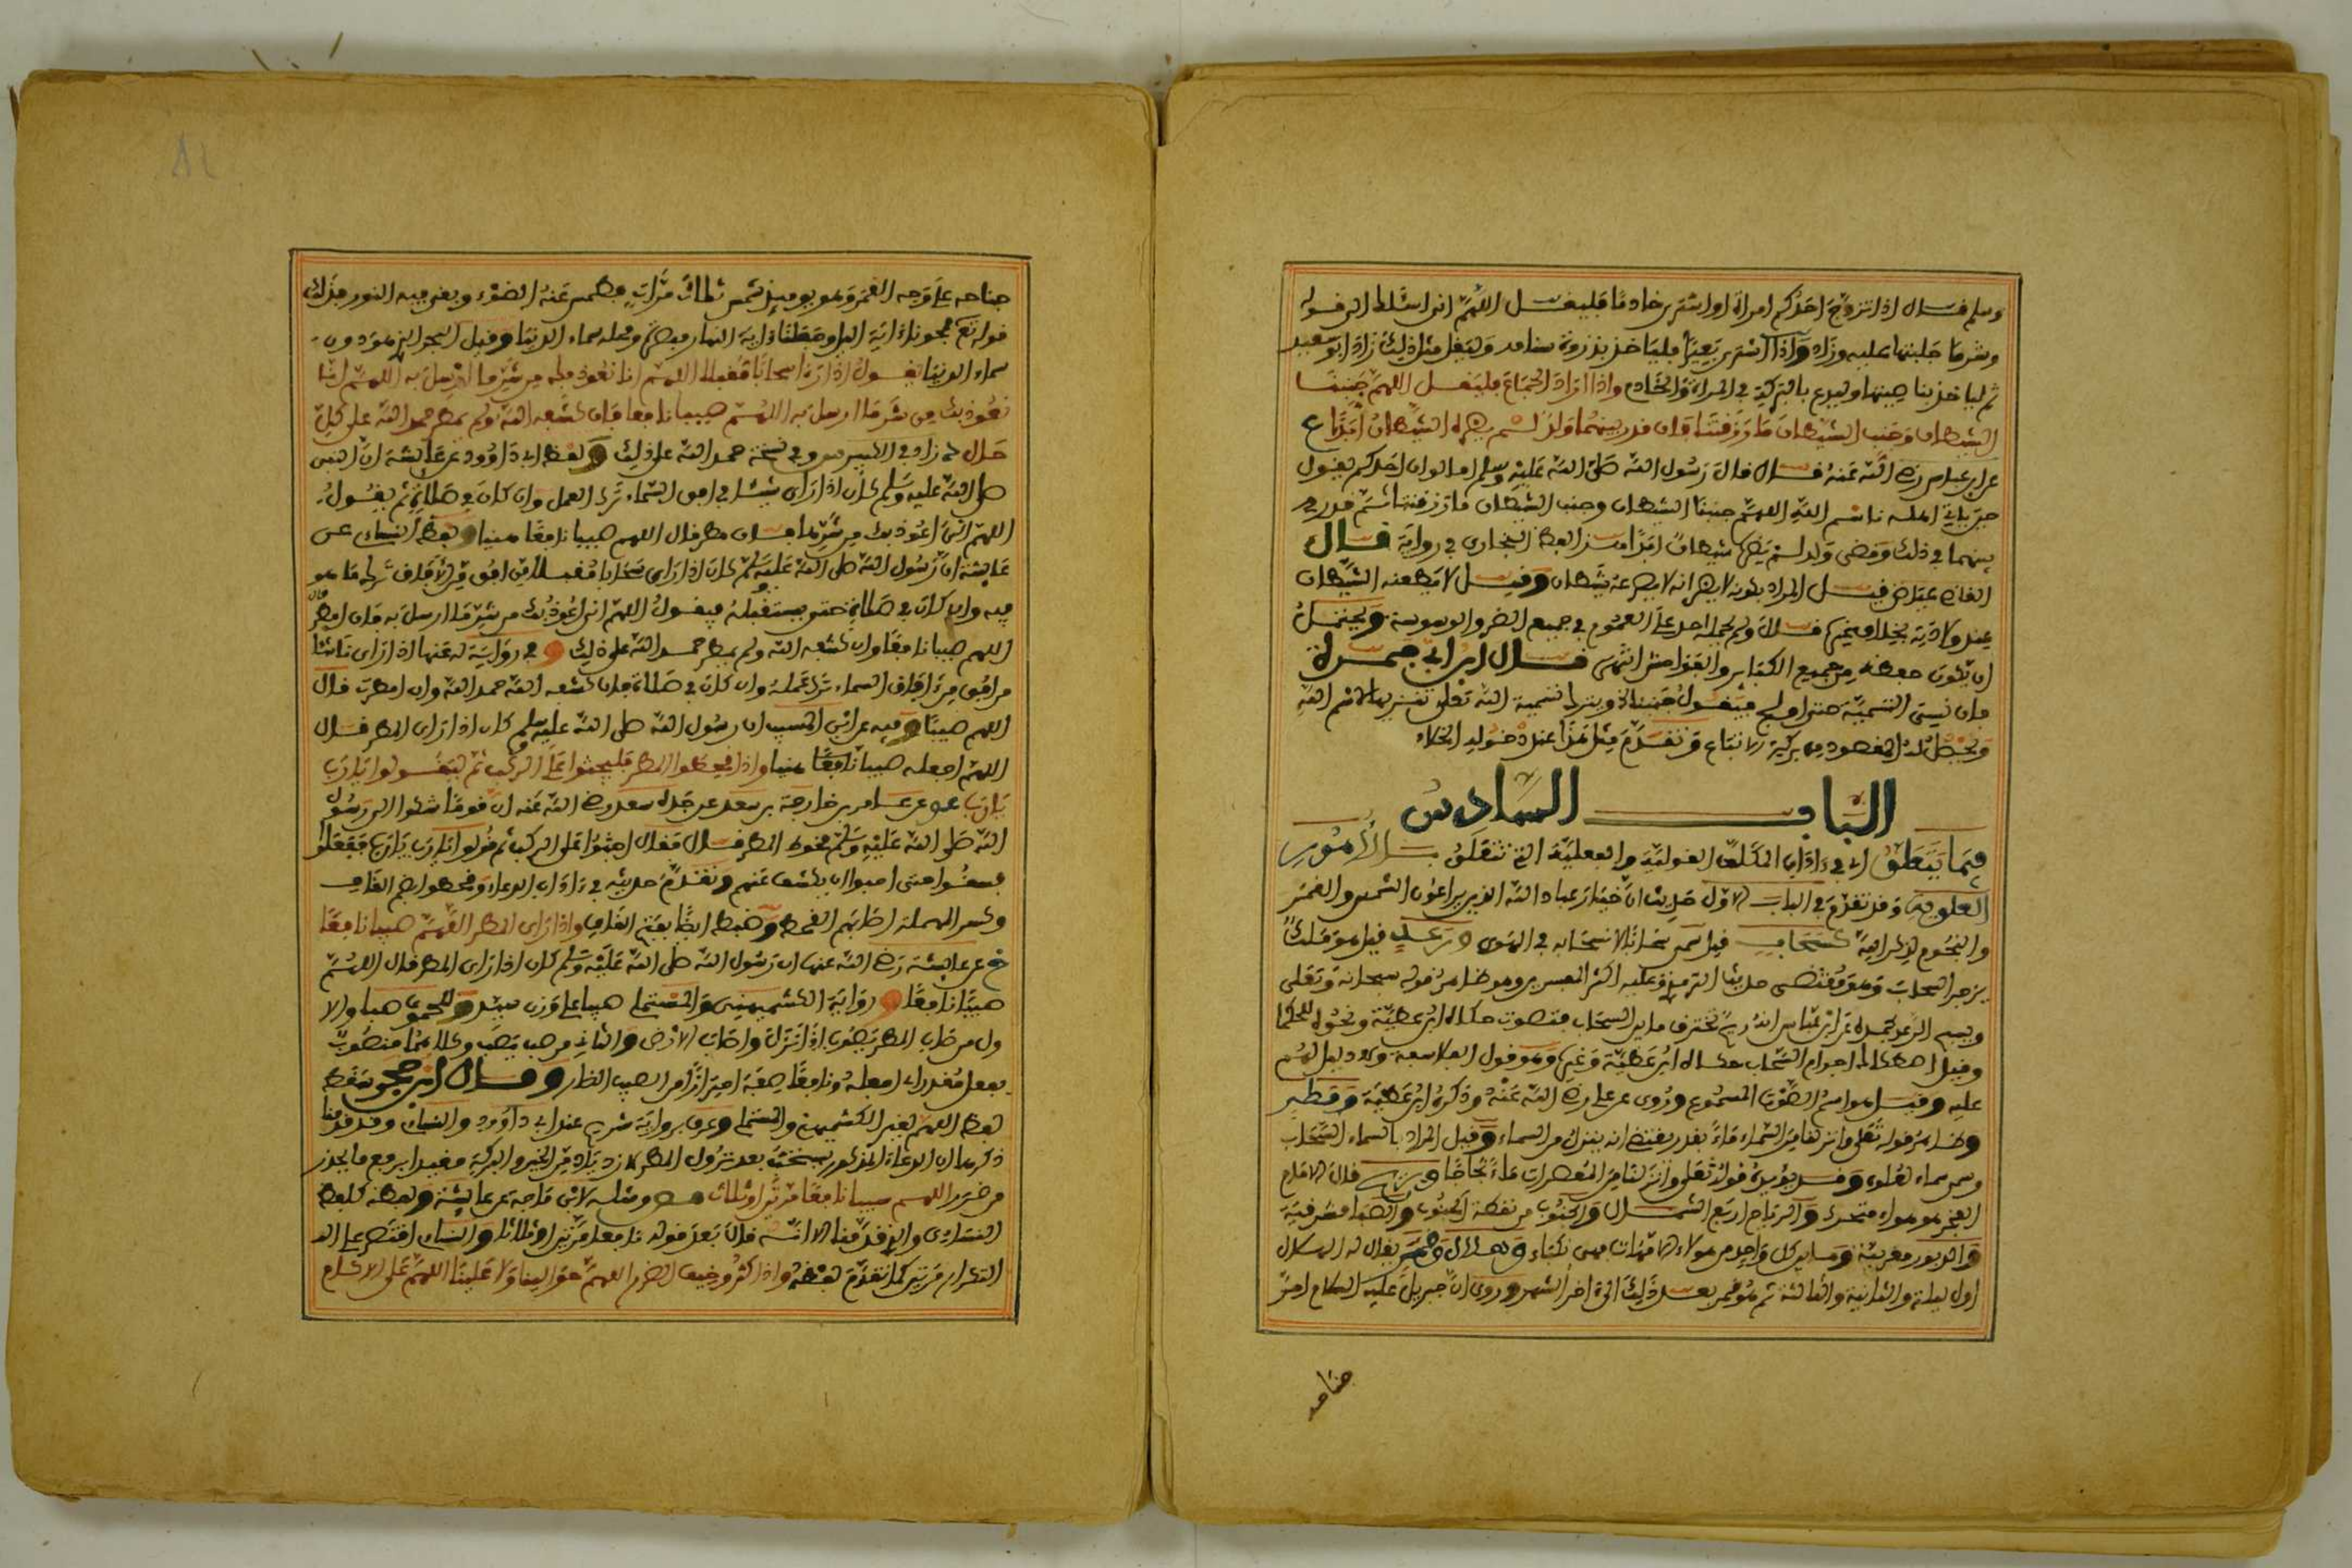 وسلم فال اذا تزوج احدكم امراة او اشترى خادما فليفل اللهم انى اسئلك الى فوله
وشر ما جبلتها عليه وزاد واذا اشترى بعيرا فلياخذ بذروة سنامه وليفل مثل ذلك زاد ابو سعيد
ثم لياخذ بناصيتها وليدع بالبركة في المراة والخادم واذا اراد الجماع فليفل اللهم جنبنا
الشيطان وجنب الشيطان ما رزفتنا فان فدر بينهما ولد لم يضره الشيطان ابدا ع
عن ابن عباس رضى الله عنه فال فال رسول الله صلى الله عليه وسلم اما لو ان احدكم يفول
حين ياتي اهله باسم الله اللهم جنبنا الشيطان وجنب الشيطان ما رزفتنا ثم فدر
بينهما في ذلك وفضى ولد لم يضره شيطان ابدا هذا لفظ البخارى في رواية فال
الفاضى عياض فيل المراد بكونه لا يضره انه لا يصرعه شيطان وفيل لا يطعنه الشيطان
عند ولادته بخلاف غيره فال ولم يحمله احد على العموم في جميع الضرر والوسوسة ويحتمل
ان يكون حفظه من جميع الكبائر والفواحش انتهى فال ابن ابي جمرة
فان نسى التسمية حتى اولج فيفول جنبنا
ويحصل له المفصود من بركة الاتباع وتفدم مثل هذا عند دخول الخلاء
الباب السادس
فيما يتعلق اى في اداب المكلف الفولية والفعلية التى تتعلق بالامور
العلوية وفد تفدم في الباب الاول حديث ان خيار عباد الله الذين يراعون الشمس والفمر
والنجوم لذكر الله كسحاب فيل سمى سحابا لانسحابه في الهوى ورعد فيل هو ملك
يزجر السحاب وهو مفتضى حديث الترمذى وعليه اكثر المفسرين وهو ظاهر فوله سبحانه وتعلى
ويسبح الرعد بحمده عن ابن عباس انه ريح تختنق ما بين السحاب فتصوت حكاه ابن عطية ونحوه للحكما
وفيل اصطكاك اجرام السحاب حكاه ابن عطية وغيره وهو فول الفلاسفة ولا دليل لهم
عليه وفيل هو اسم الصوت المسموع وروى عن على رضى الله عنه وذكره ابن عطية ومطر
وظاهر فوله تعلى وانزلنا من السماء ماء بفدر يفتضى انه ينزل من السماء وفيل المراد بالسماء السحاب
وسمى سماء لعلوه وفد يؤيده فوله تعلى وانزلنا من المعصرات ماء ثجاجا وريح فال الامام
الفخر هو هواء متحرك والرياح اربع الشمال والجنوب من نفطة الجنوب والصبا مشرفية
والدبور مغربية وما بين كل واحد من هؤلاء الامهات فهى نكباء وهلال وفمر يفال له الهلال
اول ليلة والثانية والثالثة ثم هو فمر بعد ذلك الى اخر الشهر وروى ان جبريل عليه السلام امر
جناحه
جناحه على وجه الفمر وهو يومئذ شمس ثلاث مرات فطمس عنه الضوء وبفى فيه النور فذلك
فوله تع فمحونا ءاية اليل وجعلنا ءاية النهار مبصرة ومحله سماء الدنيا وفيل البحر الذى هو دون
سماء الدنيا يفول اذا راى سحابا مفبلا اللهم انا نعوذ بك من شر ما ارسل به اللهم انا
نعوذ بك من شر ما ارسل به اللهم صيبا نافعا فان كشفه الله ولم يمطر حمد الله على كل
حال زاد في الكبير وفي نسخة حمد الله على ذلك ولفظ ابى داوود عن عائشة ان النبى
صلى الله عليه وسلم كان اذا راى شيئا في افق السماء ترك العمل وان كان في صلاة ثم يفول
اللهم انى اعوذ بك من شرها فان مطر فال اللهم صيبا نافعا هنيا ولفظ النسائى عن
عائشة ان رسول الله صلى الله عليه وسلم كان اذا راى سحابا مفبلا من افق من الافاق ترك ما هو
فيه وان كان في صلاته حتى يستفبله فيفول اللهم انى اعوذ بك من شر ما ارسل به فان امطر فال
اللهم صيبا نافعا وان كشفه الله ولم يمطر حمد الله على ذلك وفي رواية له عنها اذا راى ناشئا
من افق من ءافاق السماء ترك عمله وان كان في صلاة فان كشفه الله حمد الله وان امطرت فال
اللهم صيبا وفيه عن ابن المسيب ان رسول الله صلى الله عليه وسلم كان اذا راى المطر فال
اللهم اجعله صيبا نافعا هنيا واذا فحطوا المطر فليجثوا على الركب ثم ليفولوا يا رب
يا رب عو عن عامر بن خارجة بن سعد عن جده سعد رضى الله عنه ان فوما شكوا الى رسول
الله صلى الله عليه وسلم فحوط المطر فال ففال اجثوا على الركب ثم فولوا يا رب يا رب ففعلوا
فسفوا حتى احبوا ان يكشف عنهم وتفدم حديثه في ءاداب الدعاء وفحطوا بضم الفاف
وكسر المهملة اصابهم الفحط وضبط ايضا بفتح الفاف واذا راى المطر اللهم صيبا نافعا
خ عن عائشة رضى الله عنها ان رسول الله صلى الله عليه وسلم كان اذا راى المطر فال اللهم
صيبا نافعا ورواية الكشميهنى والمستملى صيبا على وزن سيد وللحموى صبا والا
ول من صاب المطر يصوب اذا نزل واصاب الارض والثانى من صب يصب وكلاهما منصوب
بفعل مفدر اى اجعله ونافعا صفة احترازا من الصيب الضار وفال ابن حجر سفط
لفظ اللهم لغير الكشميهنى والمستملى وعرف برواية شريك عند ابى داوود والنسائى وفد فدمنا
ذكرها ان الدعاء المذكور يستحب بعد نزول المطر لازدياد من الخير والبركة مفيدا برفع ما يحذر
من ضرر اللهم سيبا نافعا مرتين او ثلاثا مص ومثله لابن ماجة عن عائشة ولفظه كلفظ
النسائى والذى فدمنا الا انه فال بعد فوله نافعا مرتين او ثلاثا والنسائى افتصر على
التكرار مرتين كما تفدم لفظه واذا كثر وخيف الضرر اللهم حوالينا ولا علينا اللهم على الاكام